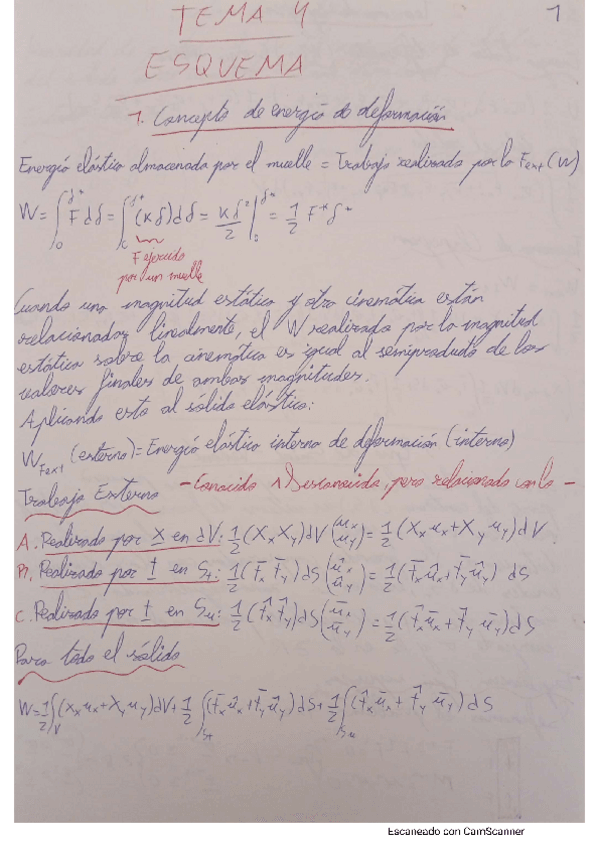 TEMA 4
1
ESQUEMA
1. Concepto de energía de deformación
Energía elástica almacenada por el muelle = Trabajo realizado por la Fext (W)
W = ∫₀^δ* F dδ = ∫₀^δ* (kδ) dδ = kδ²/2 |₀^δ* = 1/2 F* δ*
F ejercida
por un muelle
Cuando una magnitud estática y otra cinemática están
relacionadas linealmente, el W realizado por la magnitud
estática sobre la cinemática es igual al semiproducto de los
valores finales de ambas magnitudes.
Aplicando esto al sólido elástico:
W_Fext (externo) = Energía elástica interna de deformación (interna)
Trabajo Externo - Conocido ∧ Desconocida, pero relacionada con la -
A. Realizado por X en dV: 1/2 (Xₓ X_y) dV (uₓ u_y) = 1/2 (Xₓ uₓ + X_y u_y) dV.
B. Realizado por t̄ en S_t: 1/2 (t̄ₓ t̄_y) dS (ûₓ û_y) = 1/2 (t̄ₓ ûₓ + t̄_y û_y) dS
C. Realizado por t̂ en S_u: 1/2 (t̂ₓ t̂_y) dS (ūₓ ū_y) = 1/2 (t̂ₓ ūₓ + t̂_y ū_y) dS
Para todo el sólido
W = 1/2 ∫_V (Xₓ uₓ + X_y u_y) dV + 1/2 ∫_St (t̄ₓ ûₓ + t̄_y û_y) dS + 1/2 ∫_Su (t̂ₓ ūₓ + t̂_y ū_y) dS
Escaneado con CamScanner